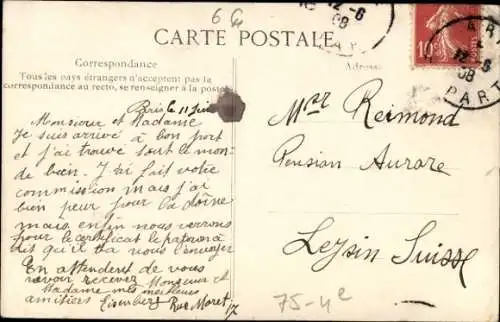 6 G
CARTE POSTALE
12-6
08
PARTANT
Correspondance
Adresse
Tous les pays étrangers n'acceptent pas la
correspondance au recto, se renseigner à la poste
10c
PART
Paris le 11 juin
Monsieur et Madame
Je suis arrivé à bon port
et j'ai trouvé tout le mon-
de bien. J'ai fait votre
commission mais j'ai
bien peur pour la
mais enfin nous verrons
pour le certificat le
dit qu'il va nous l'envoyer
En attendent de vous
revoir recevez Monsieur et
Madame mes meilleurs
amitiers Eisenberg Rue Moret 17
Msr Reimond
Pension Aurore
Leysin Suisse
75-4e